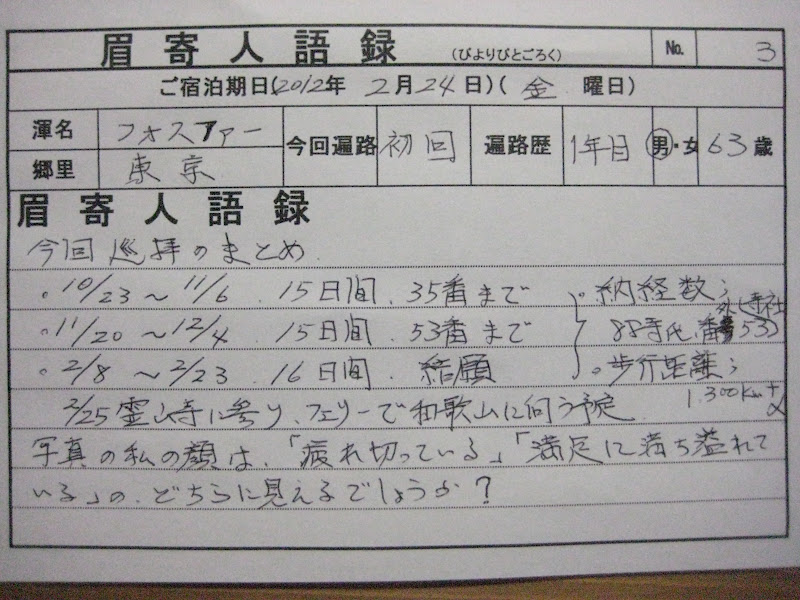 眉寄人語録 (びよりびとごろく) No. 3
ご宿泊期日(2012年 2月24日)(金 曜日)
渾名 フォスファー 今回遍路 初回 遍路歴 1年目 男・女 63歳
郷里 東京
眉寄人語録
今回巡拝のまとめ
。10/23〜11/6 . 15日間 . 35番まで 。納経数;
。11/20〜12/4 . 15日間 . 53番まで 88寺 番外寺社 53
。2/8〜2/23 . 16日間 . 結願 。歩行距離;
1,300km+α
2/25霊山寺に参り、フェリーで和歌山に向う予定
写真の私の顔は、「疲れ切っている」「満足に満ち溢れて
いる」の、どちらに見えるでしょうか?